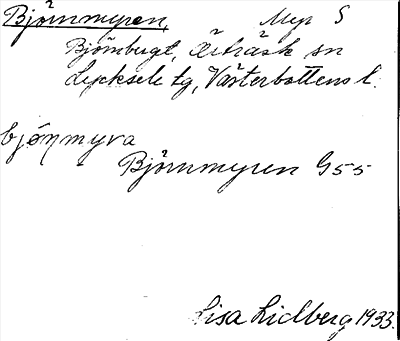 Björnmyren, Myr S
Björnbugt, Örträsk sn
Lycksele tg, Västerbottens l.
bjö̀ṇmyra
Björnmyren G55
Lisa Lidberg 1933.